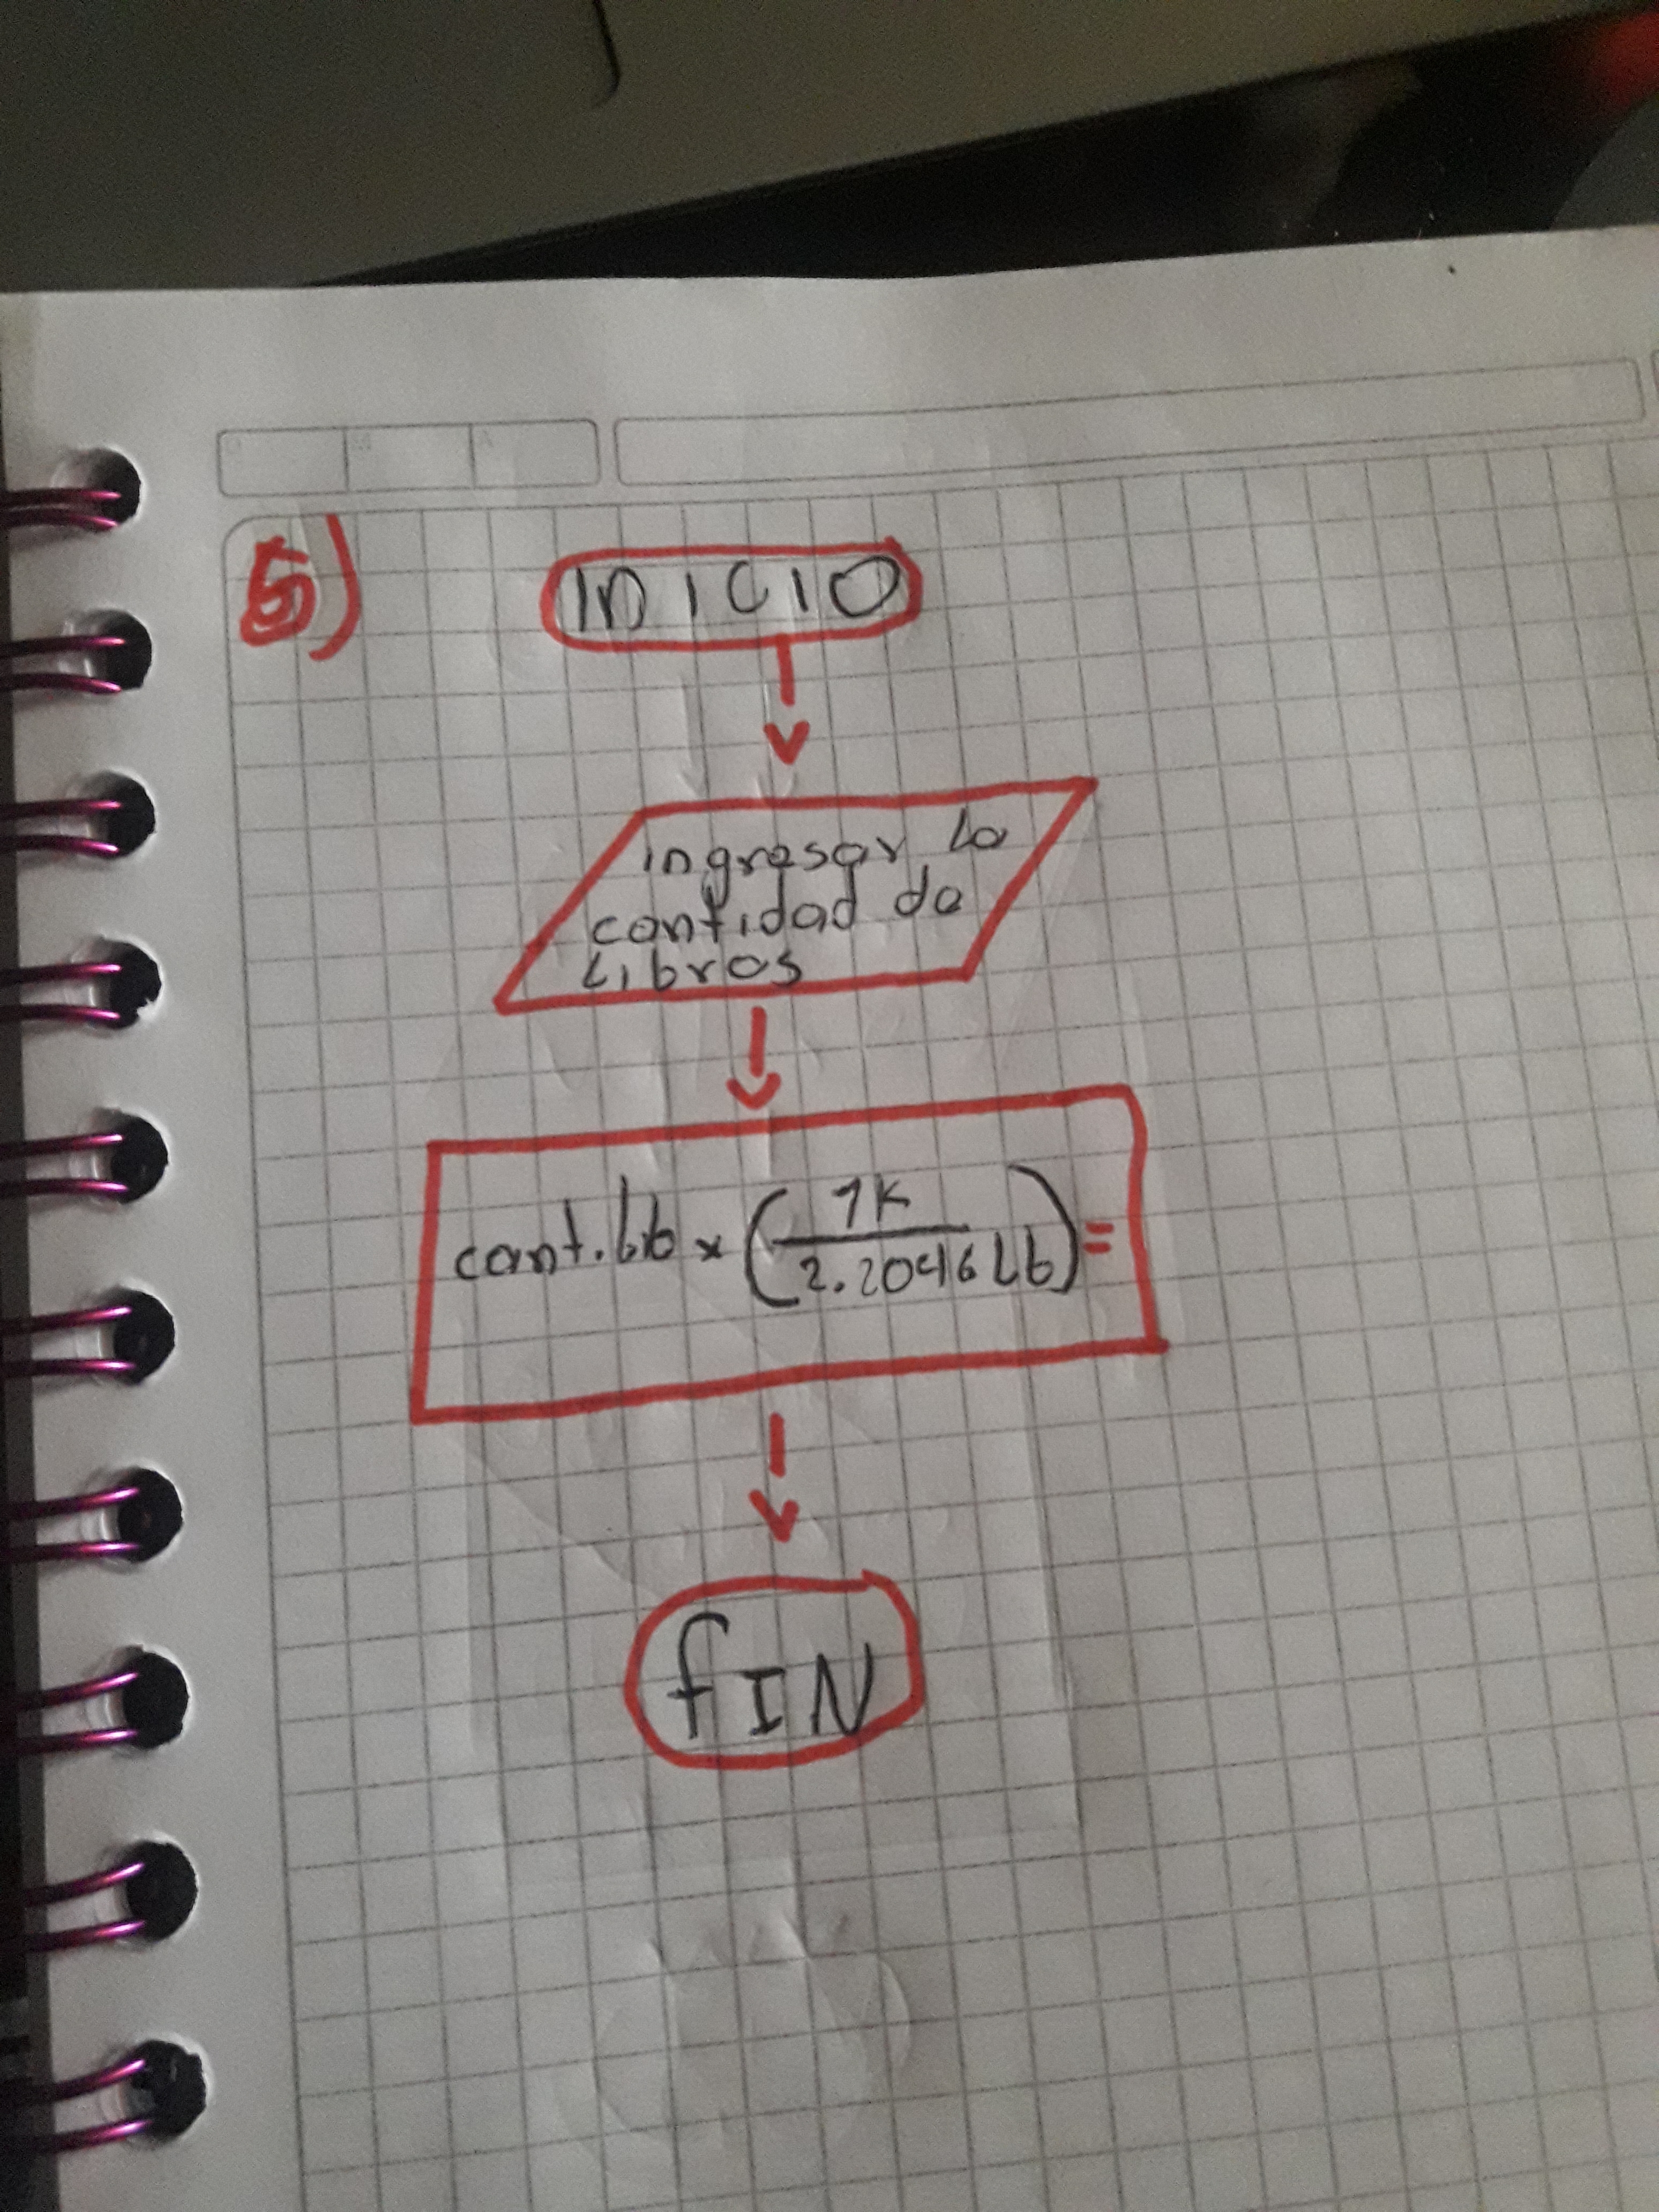 5)
INICIO
ingresar la
cantidad de
Libros
cant.Lb x (1K
2.2046 Lb) =
fIN